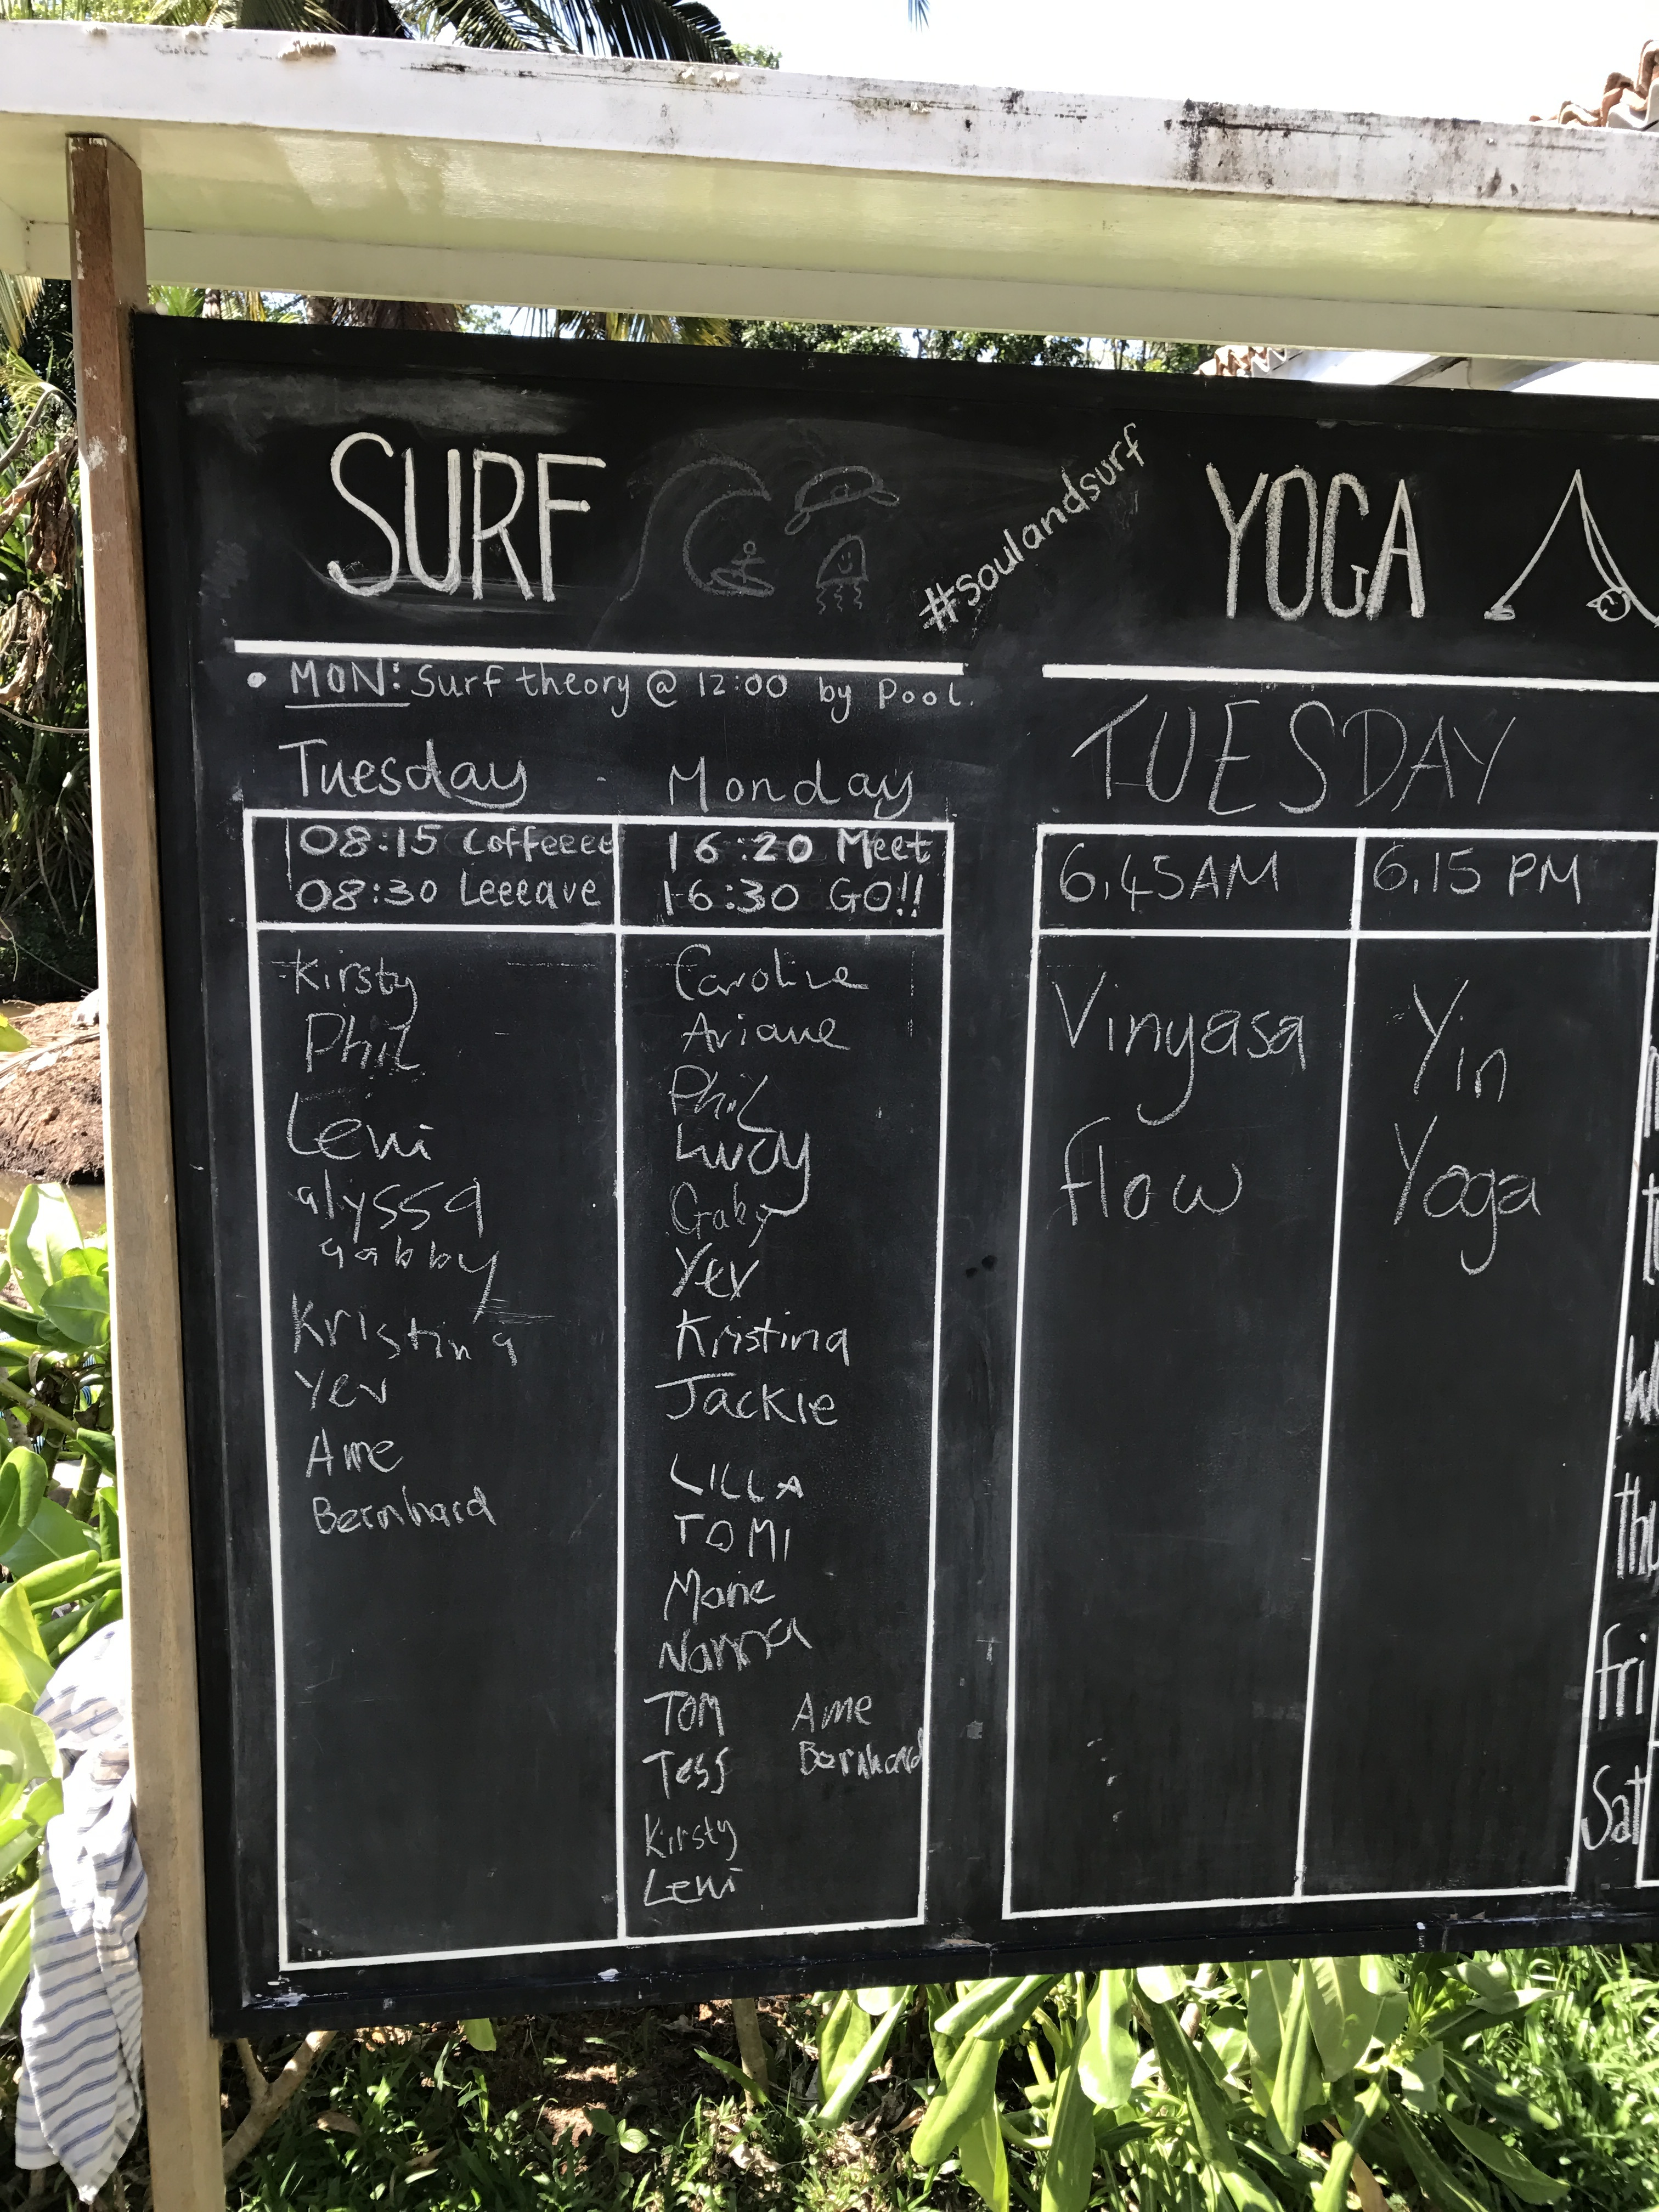 SURF
#soulandsurf
• MON: Surf theory @ 12:00 by Pool.
Tuesday
08:15 Coffeeee
08:30 Leeeave
Kirsty
Phil
Leni
alyssa
gabby
Kristina
Yev
Ame
Bernhard
Monday
16:20 Meet
16:30 GO!!
Caroline
Ariane
Phil
Lucy
Gaby
Yev
Kristina
Jackie
LILLA
TOMI
Marie
Nanna
Tom
Tess
Kirsty
Leni
Ame
Bernhard
YOGA
TUESDAY
6.45AM
Vinyasa
flow
6.15 PM
Yin
Yoga
fri
Sat